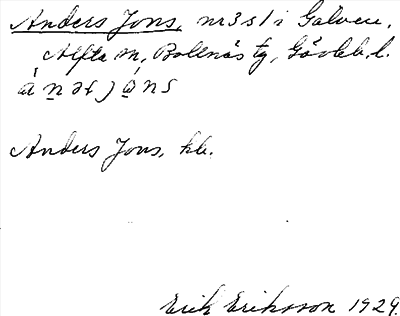 Anders Jons, nr 3 s 1 i Galven,
Alfta sn, Bollnäs tg, Gävleb. l.
Anders Jons, kb.
Erik Eriksson 1929.